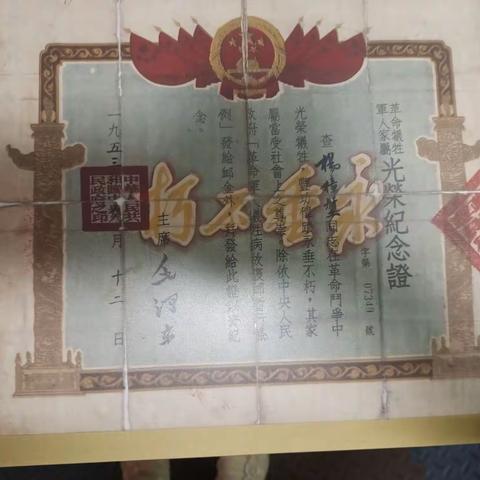 革命犧牲
軍人家屬
光榮紀念證
字第 號
查楊 同志在革命鬥爭中
光榮犧牲,豐功偉績永垂不朽,其家
屬當受社會上之尊崇。除依中央人民
政府「革命軍人犧牲病故褒卹暫行條
例」發給卹金外,並發給此證以資紀
念。
主席 毛澤東
一九五三年 月十二日
永垂不朽